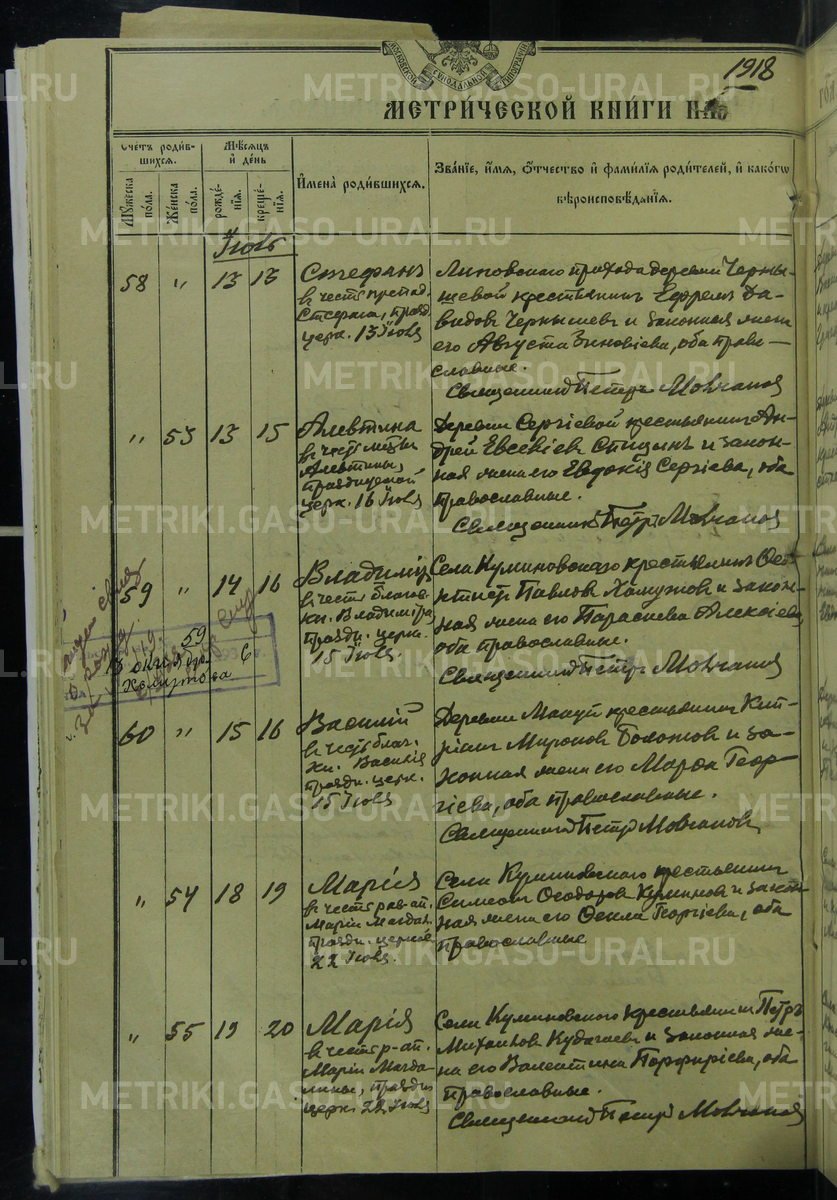 1918
МЕТРИ́ЧЕСКОЙ КНИ́ГИ НА
Счетъ роди́в-
шихся.
Мѣсяцъ
и҆ де́нь
Мꙋжеска
по́ла.
Же́нска
по́ла.
рожде́-
нїѧ.
креще́-
нїѧ.
И҆мена̀ роди́вшихсѧ.
Зва́нїе, и҆́мѧ, ѻ҆́тчество и҆ фами́лїѧ роди́телей, и҆ како́гѡ
вѣроисповѣ́данїѧ.
Іюль
58 " 13 13
Стефанъ
въ честь препод.
Стефана, празд.
церк. 13 Іюля
Липовскаго прихода деревни Черны-
шевой крестьянинъ Ефремъ Да-
видовъ Чернышевъ и законная жена
его Августа Зиновіева, оба право-
славные.
Священникъ Петръ Мовчановъ
" 53 13 15
Алевтина
въ честь мцы
Алевтины,
празднуемой
церк. 16 Іюля
Деревни Сергіевой крестьянинъ Ан-
дрей Евсевіевъ Спицынъ и закон-
ная жена его Евдокія Сергіева, оба
православные.
Священникъ Петръ Мовчановъ
59 " 14 16
Владиміръ
въ честь благов.
кн. Владиміра
праздн. церк.
15 Іюля
Села Куминовскаго крестьянинъ
Павловъ Хомутовъ и закон-
ная жена его Параскева Алексіева
оба православные.
Священникъ Петръ Мовчановъ
59
октября 6
Хомутова
60 " 15 16
Василій
въ честь благ.
кн. Василія
праздн. церк.
15 Іюля
Деревни крестьянинъ Кип-
ріанъ Мироновъ Болотовъ и за-
конная жена его Марѳа Геор-
гіева, оба православные.
Священникъ Петръ Мовчановъ
" 54 18 19
Марія
въ честь рав-ап.
Маріи Магдал.
праздн. церк.
22 Іюля.
Села Куминовскаго крестьянинъ
Симеонъ Ѳеодоровъ Куминовъ и закон-
ная жена его Ѳекла Георгіева, оба
православные
" 55 19 20
Марія
въ честь р-ап.
Маріи Магда-
лины, праздн.
церк. 22 Іюля
Села Куминовскаго крестьянинъ Петръ
Михаиловъ и законная же-
на его Валентина Порфиріева, оба
православные.
Священникъ Петръ Мовчановъ
METRIKI.GASO-URAL.RU